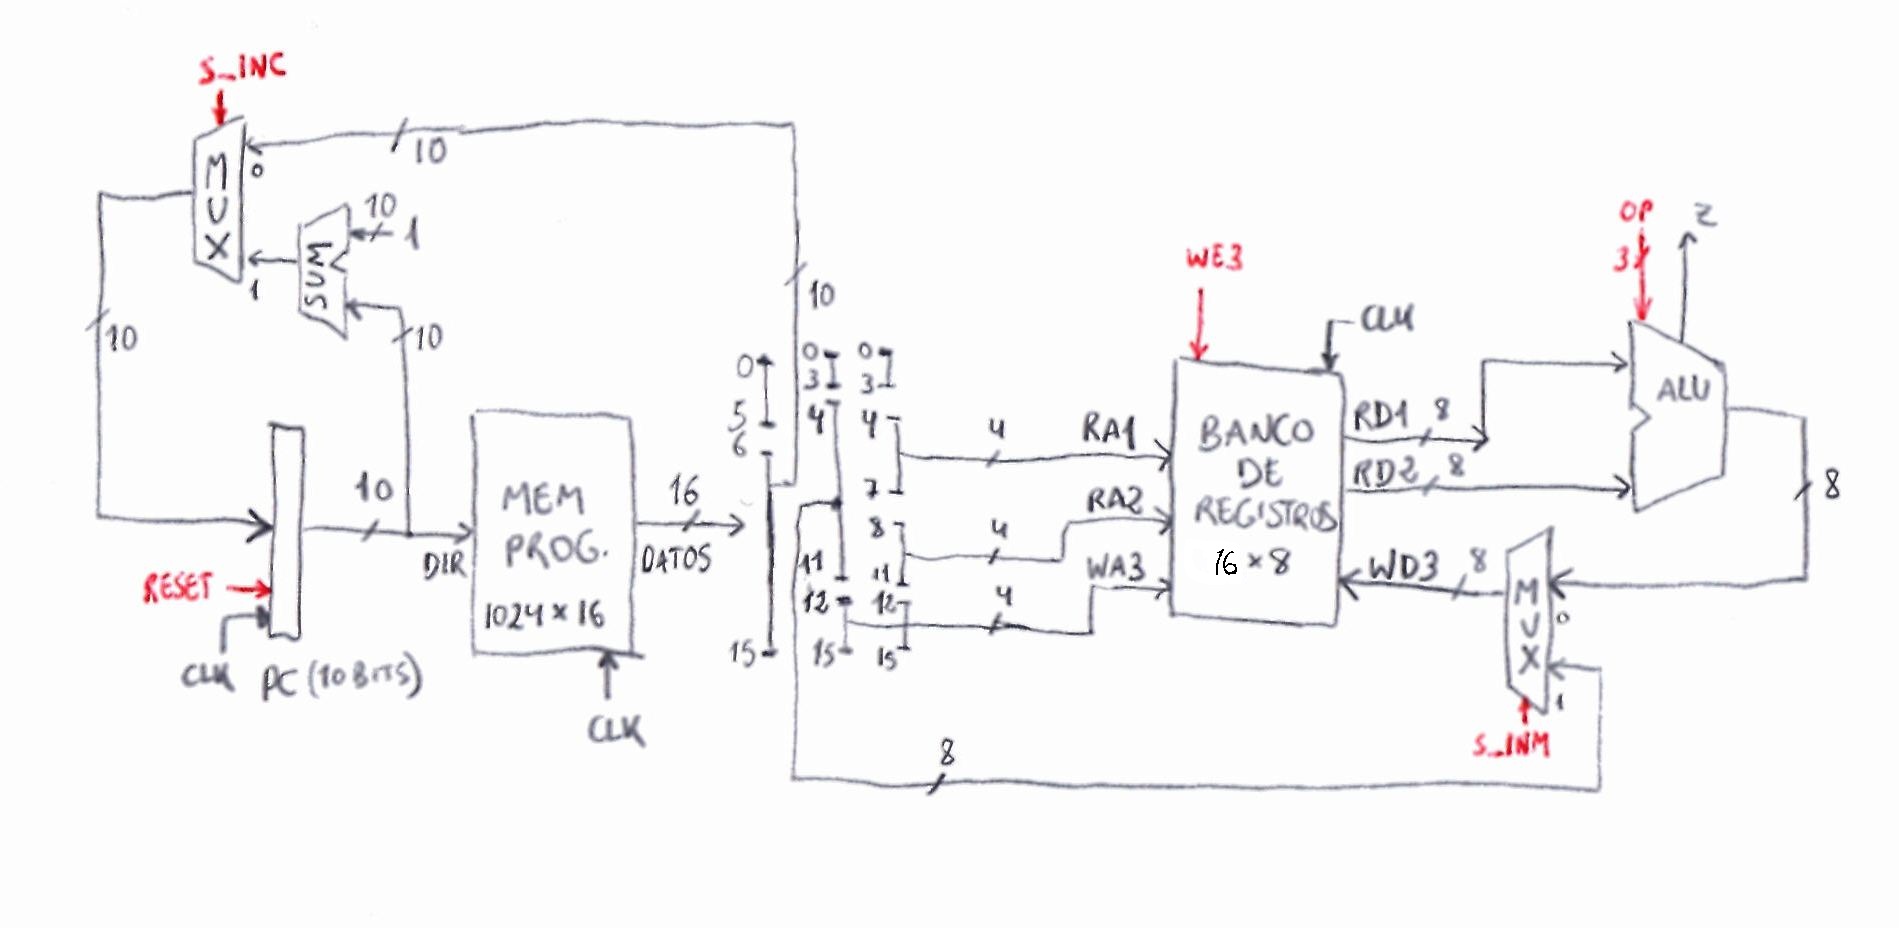 S_INC
MUX
0
1
10
10
1
SUM
10
10
10
RESET
CLK
PC (10 BITS)
10
DIR
MEM
PROG.
1024 × 16
CLK
16
DATOS
0
5
6
15
0
3
4
11
12
15
0
3
4
7
8
11
12
15
4
RA1
4
RA2
4
WA3
WE3
CLK
BANCO
DE
REGISTROS
16 × 8
RD1
8
RD2
8
WD3
8
OP
3
Z
ALU
8
MUX
0
1
S_INM
8